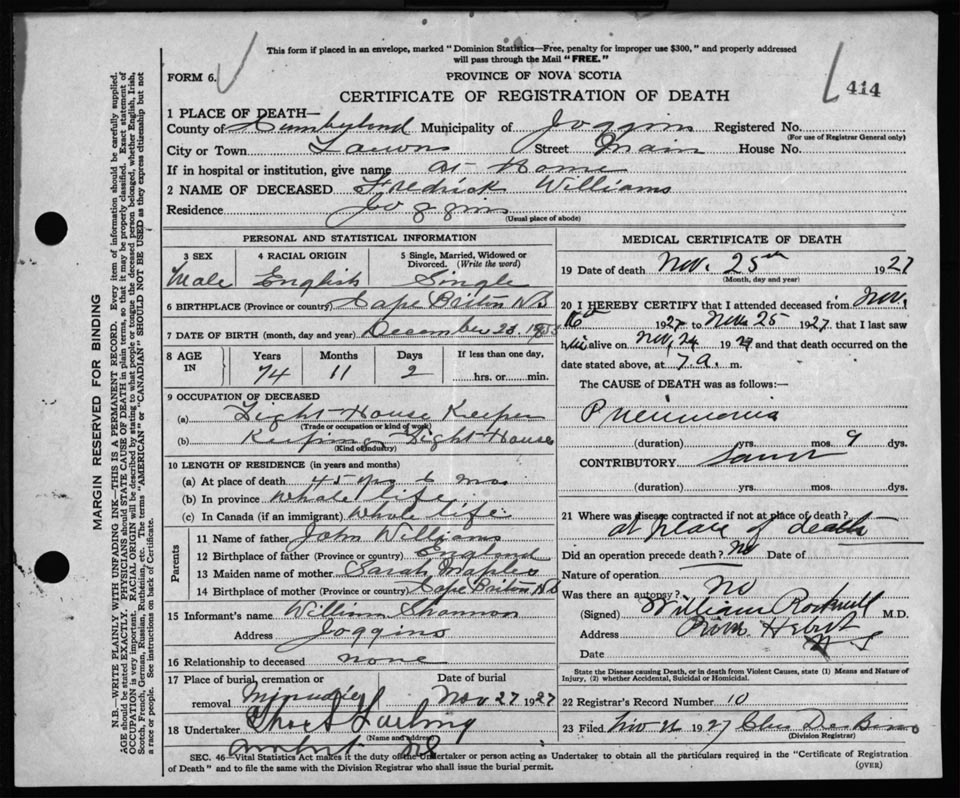 This form if placed in an envelope, marked "Dominion Statistics—Free, penalty for improper use $300," and properly addressed
will pass through the Mail "FREE."
FORM 6.
PROVINCE OF NOVA SCOTIA
CERTIFICATE OF REGISTRATION OF DEATH
414
1 PLACE OF DEATH—
County of Cumberland Municipality of Joggins Registered No.
(For use of Registrar General only)
City or Town Street Main House No.
If in hospital or institution, give name at Home
2 NAME OF DECEASED Fredrick Williams
Residence Joggins
(Usual place of abode)
MARGIN RESERVED FOR BINDING
N.B.—WRITE PLAINLY, WITH UNFADING INK—THIS IS A PERMANENT RECORD. Every item of information should be carefully supplied.
AGE should be stated EXACTLY. PHYSICIANS should STATE CAUSE OF DEATH in plain terms, so that it may be properly classified. Exact statement of
OCCUPATION is very important. RACIAL ORIGIN will be described by stating to what people or tongue the deceased person belonged, whether English, Irish,
Scotch, French, German, Russian, Ruthenian, etc. The terms "AMERICAN" or "CANADIAN" SHOULD NOT BE USED as they express citizenship but not
a race or people. See instructions on back of Certificate.
PERSONAL AND STATISTICAL INFORMATION
3 SEX 4 RACIAL ORIGIN 5 Single, Married, Widowed or
Divorced. (Write the word)
Male English Single
6 BIRTHPLACE (Province or country) Cape Briton NS
7 DATE OF BIRTH (month, day and year) December 23
8 AGE IN Years Months Days If less than one day,
74 11 2 hrs. or min.
9 OCCUPATION OF DECEASED
(a) Light House Keeper
(Trade or occupation or kind of work)
(b) Keeping Light House
(Kind of industry)
10 LENGTH OF RESIDENCE (in years and months)
(a) At place of death 45 yrs 6 mos
(b) In province Whole life
(c) In Canada (if an immigrant) Whole life
Parents
11 Name of father John Williams
12 Birthplace of father (Province or country) England
13 Maiden name of mother Sarah
14 Birthplace of mother (Province or country) Cape Briton NS
15 Informant's name William Shannon
Address Joggins
16 Relationship to deceased none
17 Place of burial, cremation or Date of burial
removal Minudie Nov 27 1927
18 Undertaker
(Name and address)
Amherst NS
MEDICAL CERTIFICATE OF DEATH
19 Date of death Nov. 25th 1927
(Month, day and year)
20 I HEREBY CERTIFY that I attended deceased from Nov.
16th 1927 to Nov 25 1927 that I last saw
him alive on Nov, 24 1927 and that death occurred on the
date stated above, at 7 a. m.
The CAUSE of DEATH was as follows:
Pneumonia
(duration) yrs. mos. 9 dys.
CONTRIBUTORY Same
(duration) yrs. mos. dys.
21 Where was disease contracted if not at place of death?
at place of death
Did an operation precede death? no Date of
Nature of operation
Was there an autopsy? no
(Signed) William Rockwell M.D.
Address River Hebert
Date N S
State the Disease causing Death, or in death from Violent Causes, state (1) Means and Nature of
Injury, (2) whether Accidental, Suicidal or Homicidal.
22 Registrar's Record Number 10
23 Filed Nov 1927
(Division Registrar)
SEC. 46—Vital Statistics Act makes it the duty of the Undertaker or person acting as Undertaker to obtain all the particulars required in the "Certificate of Registration
of Death" and to file the same with the Division Registrar who shall issue the burial permit.
(OVER)